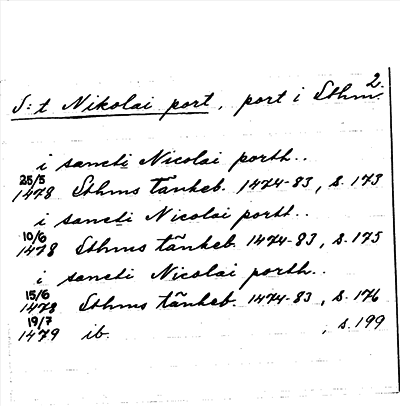 2.
S:t Nikolai port, port i Sthm.
i sancti Nicolai porth..
25/5
1478 Sthms tänkeb. 1474-83, s. 173
i sancti Nicolai portt..
10/6
1478 Sthms tänkeb. 1474-83, s. 175
i sancti Nicolai porth..
15/6
1478 Sthms tänkeb. 1474-83, s. 176
19/7
1479 ib. , s. 199